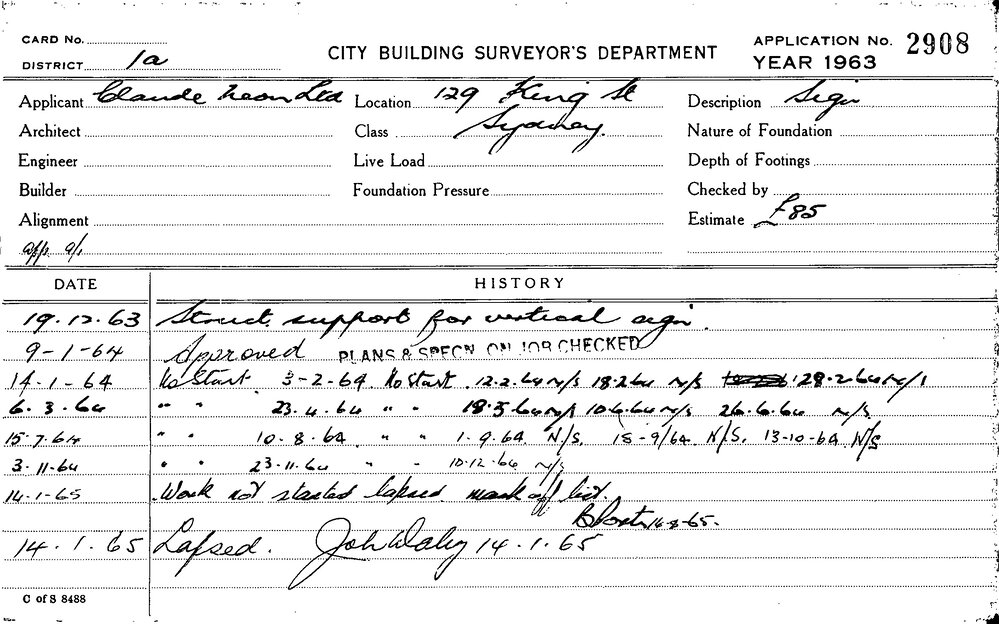 CARD No.
CITY BUILDING SURVEYOR'S DEPARTMENT
APPLICATION No. 2908
DISTRICT 1a
YEAR 1963
Applicant Claude Neon Ltd
Location 129 King St
Description Sign
Architect
Class Sydney.
Nature of Foundation
Engineer
Live Load
Depth of Footings
Builder
Foundation Pressure
Checked by
Alignment
Estimate £85
DATE HISTORY
19.12.63 Struct. support for vertical sign.
9-1-64 Approved PLANS & SPECN. ON JOB CHECKED
14-1-64 No Start 3-2-64 No start. 12.2.64 N/S 18.2.64 N/S 28.2.64 N/S
6.3.64 " " 23.4.64 " " 18.5.64 N/S 10.6.64 N/S 26.6.64 N/S
15.7.64 " " 10.8.64 " " 1.9.64 N/S. 15-9/64 N/S. 13-10-64 N/S
3.11.64 " " 23.11.64 " " 10.12.64 N/S
14.1.65 Work not started lapsed mark off list.
14.1.65 Lapsed. John Daley 14.1.65
C of S 8488